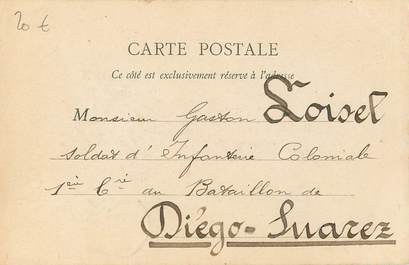 20 €
CARTE POSTALE
Ce côté est exclusivement réservé à l'adresse
Monsieur Gaston Loisel
Soldat d'Infanterie Coloniale
1ère Cie au Bataillon de
Diégo-Suarez